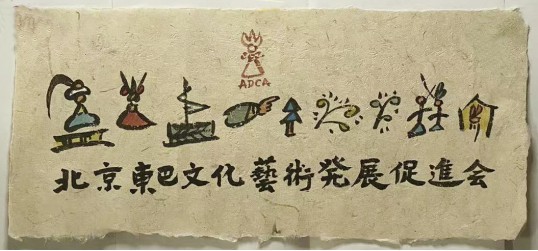 ADCA
北京東巴文化藝術発展促進会